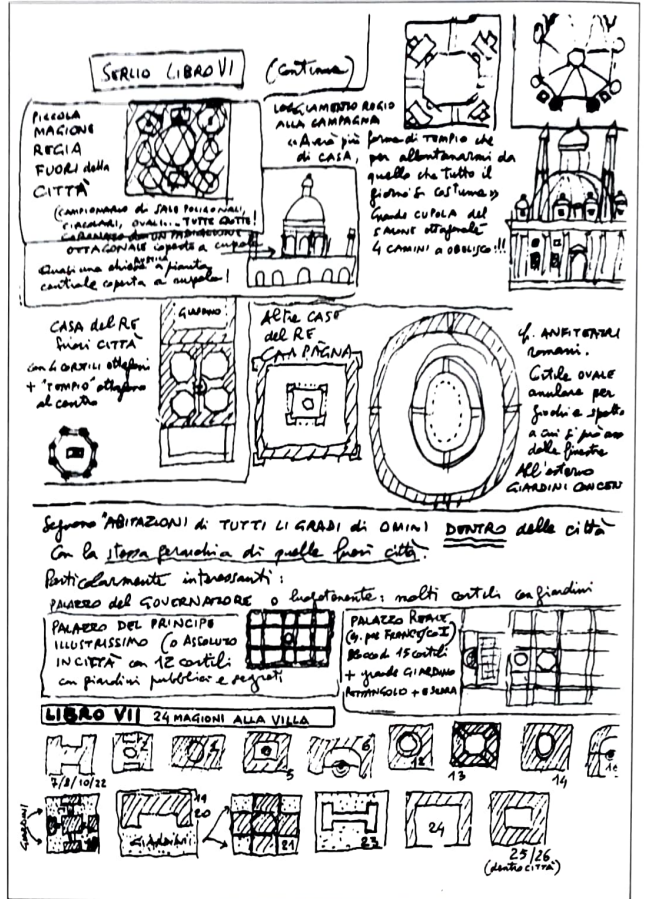 SERLIO LIBRO VI (continua)
PICCOLA
MAGIONE
REGIA
FUORI della
CITTÀ
(CAMPIONARIO di SALE POLIGONALI,
CIRCOLARI, OVALI... TUTTE
OTTAGONALE coperto a cupola
Quasi una chiesa a pianta
centrale coperta a cupola!
ALLOGGIAMENTO REGIO
ALLA CAMPAGNA
«Avrà più forma di TEMPIO che
di CASA, per allontanarmi da
quello che tutto il
giorno si costuma»
Grande CUPOLA del
SALONE ottagonale
4 CAMINI a OBELISCO!!!
CASA del RE
fuori CITTÀ
con 4 CORTILI ottagoni
+ "TEMPIO" ottagono
al centro
GIARDINO
Altre CASE
del RE
CAMPAGNA
cf. ANFITEATRI
romani.
Cortile OVALE
anulare per
giochi e spetta
a cui si può
dalle finestre
All'esterno
GIARDINI CONCEN
Seguono "ABITAZIONI di TUTTI LI GRADI di OMINI DENTRO delle città
Con la stessa gerarchia di quelle fuori città.
Particolarmente interessanti:
PALAZZO del GOVERNATORE o luogotenente: molti cortili con giardini
PALAZZO DEL PRINCIPE
ILLUSTRISSIMO (o ASSOLUTO
IN CITTÀ con 12 cortili
con giardini pubblici e segreti
PALAZZO REALE
(cf. per FRANCESCO I)
Blocco di 15 cortili
+ grande GIARDINO
RETTANGOLO + ESEDRA
LIBRO VII 24 MAGIONI ALLA VILLA
2 4 5 6 13 14
7/8/10/22
GIARDINI
19
20
GIARDINI
21 23 24
25/26
(dentro CITTÀ)